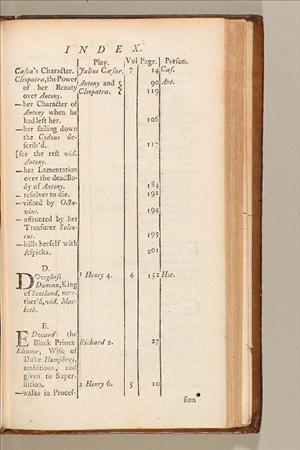 INDEX.
Play. Vol Page. Person.
Casca's Character. Julius Cæsar. 7 14 Cas.
Cleopatra, the Power Antony and 90 Ant.
of her Beauty Cleopatra. 119
over Antony.
—her Character of
Antony when he
had left her. 106
—her sailing down
the Cydnus de-
scrib'd. 117
[for the rest vid.
Antony.
—her Lamentation
over the dead Bo-
dy of Antony. 184
—resolves to die. 191
—visited by Octa-
vius. 194
—affronted by her
Treasurer Seleu-
cus. 195
—kills herself with
Aspicks. 201
D.
Douglass 1 Henry 4. 4 152 Hot.
Duncan, King
of Scotland, mur-
ther'd, vid. Mac-
beth.
E.
Edward the
Black Prince Richard 2. 27
Eleanor, Wife of
Duke Humphrey,
ambitious, and
given to Super-
stition. 2 Henry 6. 5 10
—walks in Proces-
sion